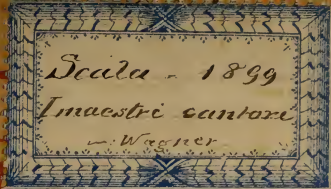 Scala - 1899
I maestri cantori
- Wagner